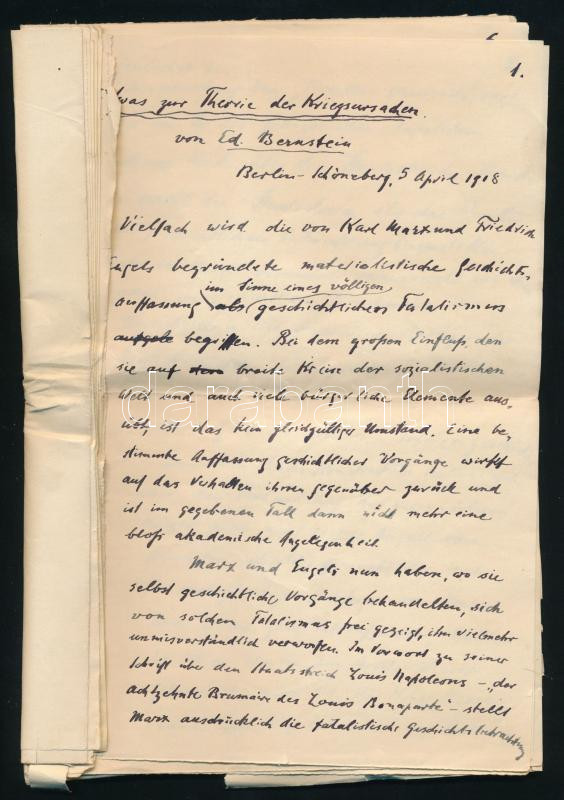 1.
was zur Theorie der Kriegsursachen.
von Ed. Bernstein
Berlin-Schöneberg, 5 April 1918
Vielfach wird die von Karl Marx und Friedrich
Engels begründete materialistische Geschichts-
im Sinne eines völligen
auffassung als geschichtlichen Fatalismus
aufgele begriffen. Bei dem großen Einfluß, den
sie auf dem breite Kreise der sozialistischen
Welt und auch viele bürgerliche Elemente aus-
übt, ist das kein gleichgültiger Umstand. Eine be-
stimmte Auffassung geschichtlicher Vorgänge wirkt
auf das Verhalten ihnen gegenüber zurück und
ist im gegebenen Fall dann nicht mehr eine
bloß akademische Angelegenheit.
Marx und Engels nun haben, wo sie
selbst geschichtliche Vorgänge behandelten, sich
von solchem Fatalismus frei gezeigt, ihn vielmehr
unmisverständlich verworfen. Im Vorwort zu seiner
Schrift über den Staatsstreich Louis Napoleons – „der
achtzehnte Brumaire des Louis Bonaparte" – stellt
Marx ausdrücklich die fatalistische Geschichtsbetrachtung
darabanth